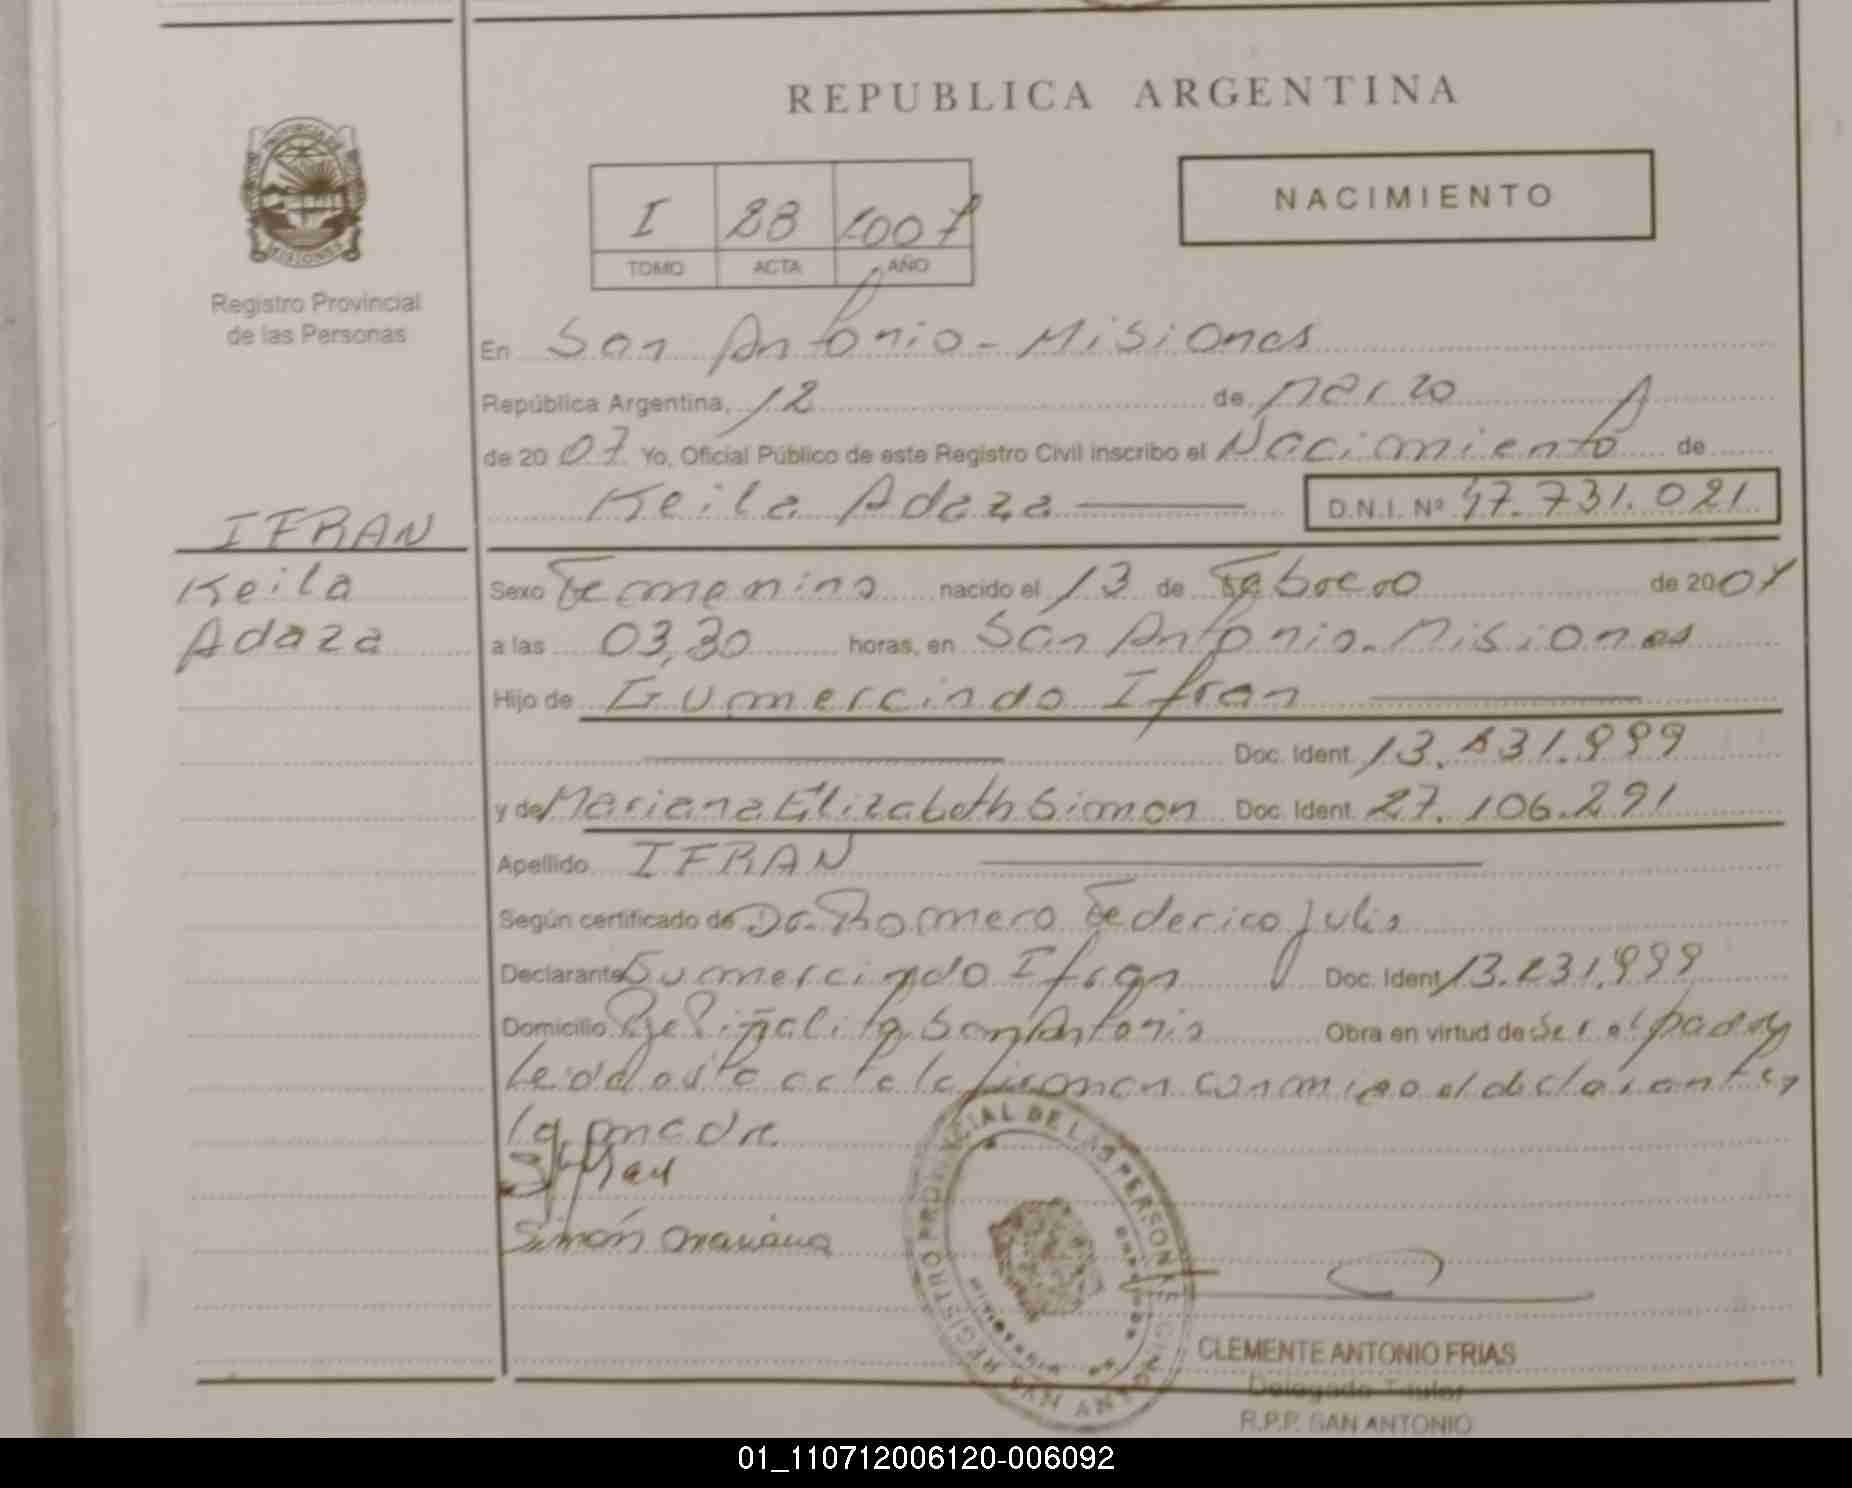 REPUBLICA ARGENTINA
NACIMIENTO
I 28 2007
TOMO ACTA AÑO
PROVINCIA DE MISIONES
Registro Provincial
de las Personas
En San Antonio - Misiones
República Argentina, 12 de Marzo
de 2007 Yo, Oficial Público de este Registro Civil inscribo el Nacimiento de
Keila Adaza D.N.I. Nº 47.731.021
IFRAN
Keila
Adaza
Sexo Femenino nacido el 13 de Febrero de 2007
a las 03,30 horas, en San Antonio - Misiones
Hijo de Gumercindo Ifran
Doc. Ident. 13.231.999
y de Mariana Elizabeth Simon Doc. Ident. 27.106.291
Apellido IFRAN
Según certificado de Dr. Romero Federico Julio
Declarante Gumercindo Ifran Doc. Ident. 13.231.999
Domicilio Piñalito San Antonio Obra en virtud de ser el padre
Leida esta acta la firman conmigo el declarante y
la madre
Ifran
Simón Mariana
REGISTRO PROVINCIAL DE LAS PERSONAS
CLEMENTE ANTONIO FRIAS
Delegado Titular
R.P.P. SAN ANTONIO
01_110712006120-006092